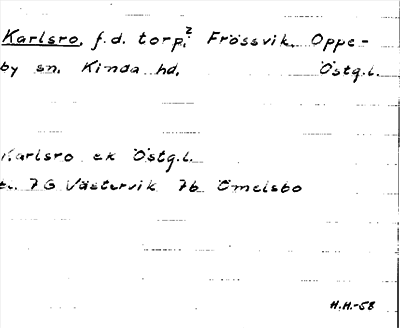 Karlsro, f.d. torp.² Frössvik, Oppe-
by sn. Kinda hd. Östg.l.
Karlsro ek Östg.l.
bl. 7G Västervik 7b Ömelsbo
H.H.-58